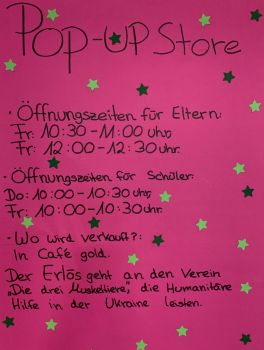 Pop-UP Store
· Öffnungszeiten für Eltern:
Fr: 10:30-11:00 Uhr,
Fr: 12:00-12:30 Uhr.
· Öffnungszeiten für Schüler:
Do: 10:00-10:30 Uhr,
Fr: 10:00-10:30 Uhr.
· Wo wird verkauft?:
In Café gold.
Der Erlös geht an den Verein
„Die drei Musketiere", die Humanitäre
Hilfe in der Ukraine leisten.